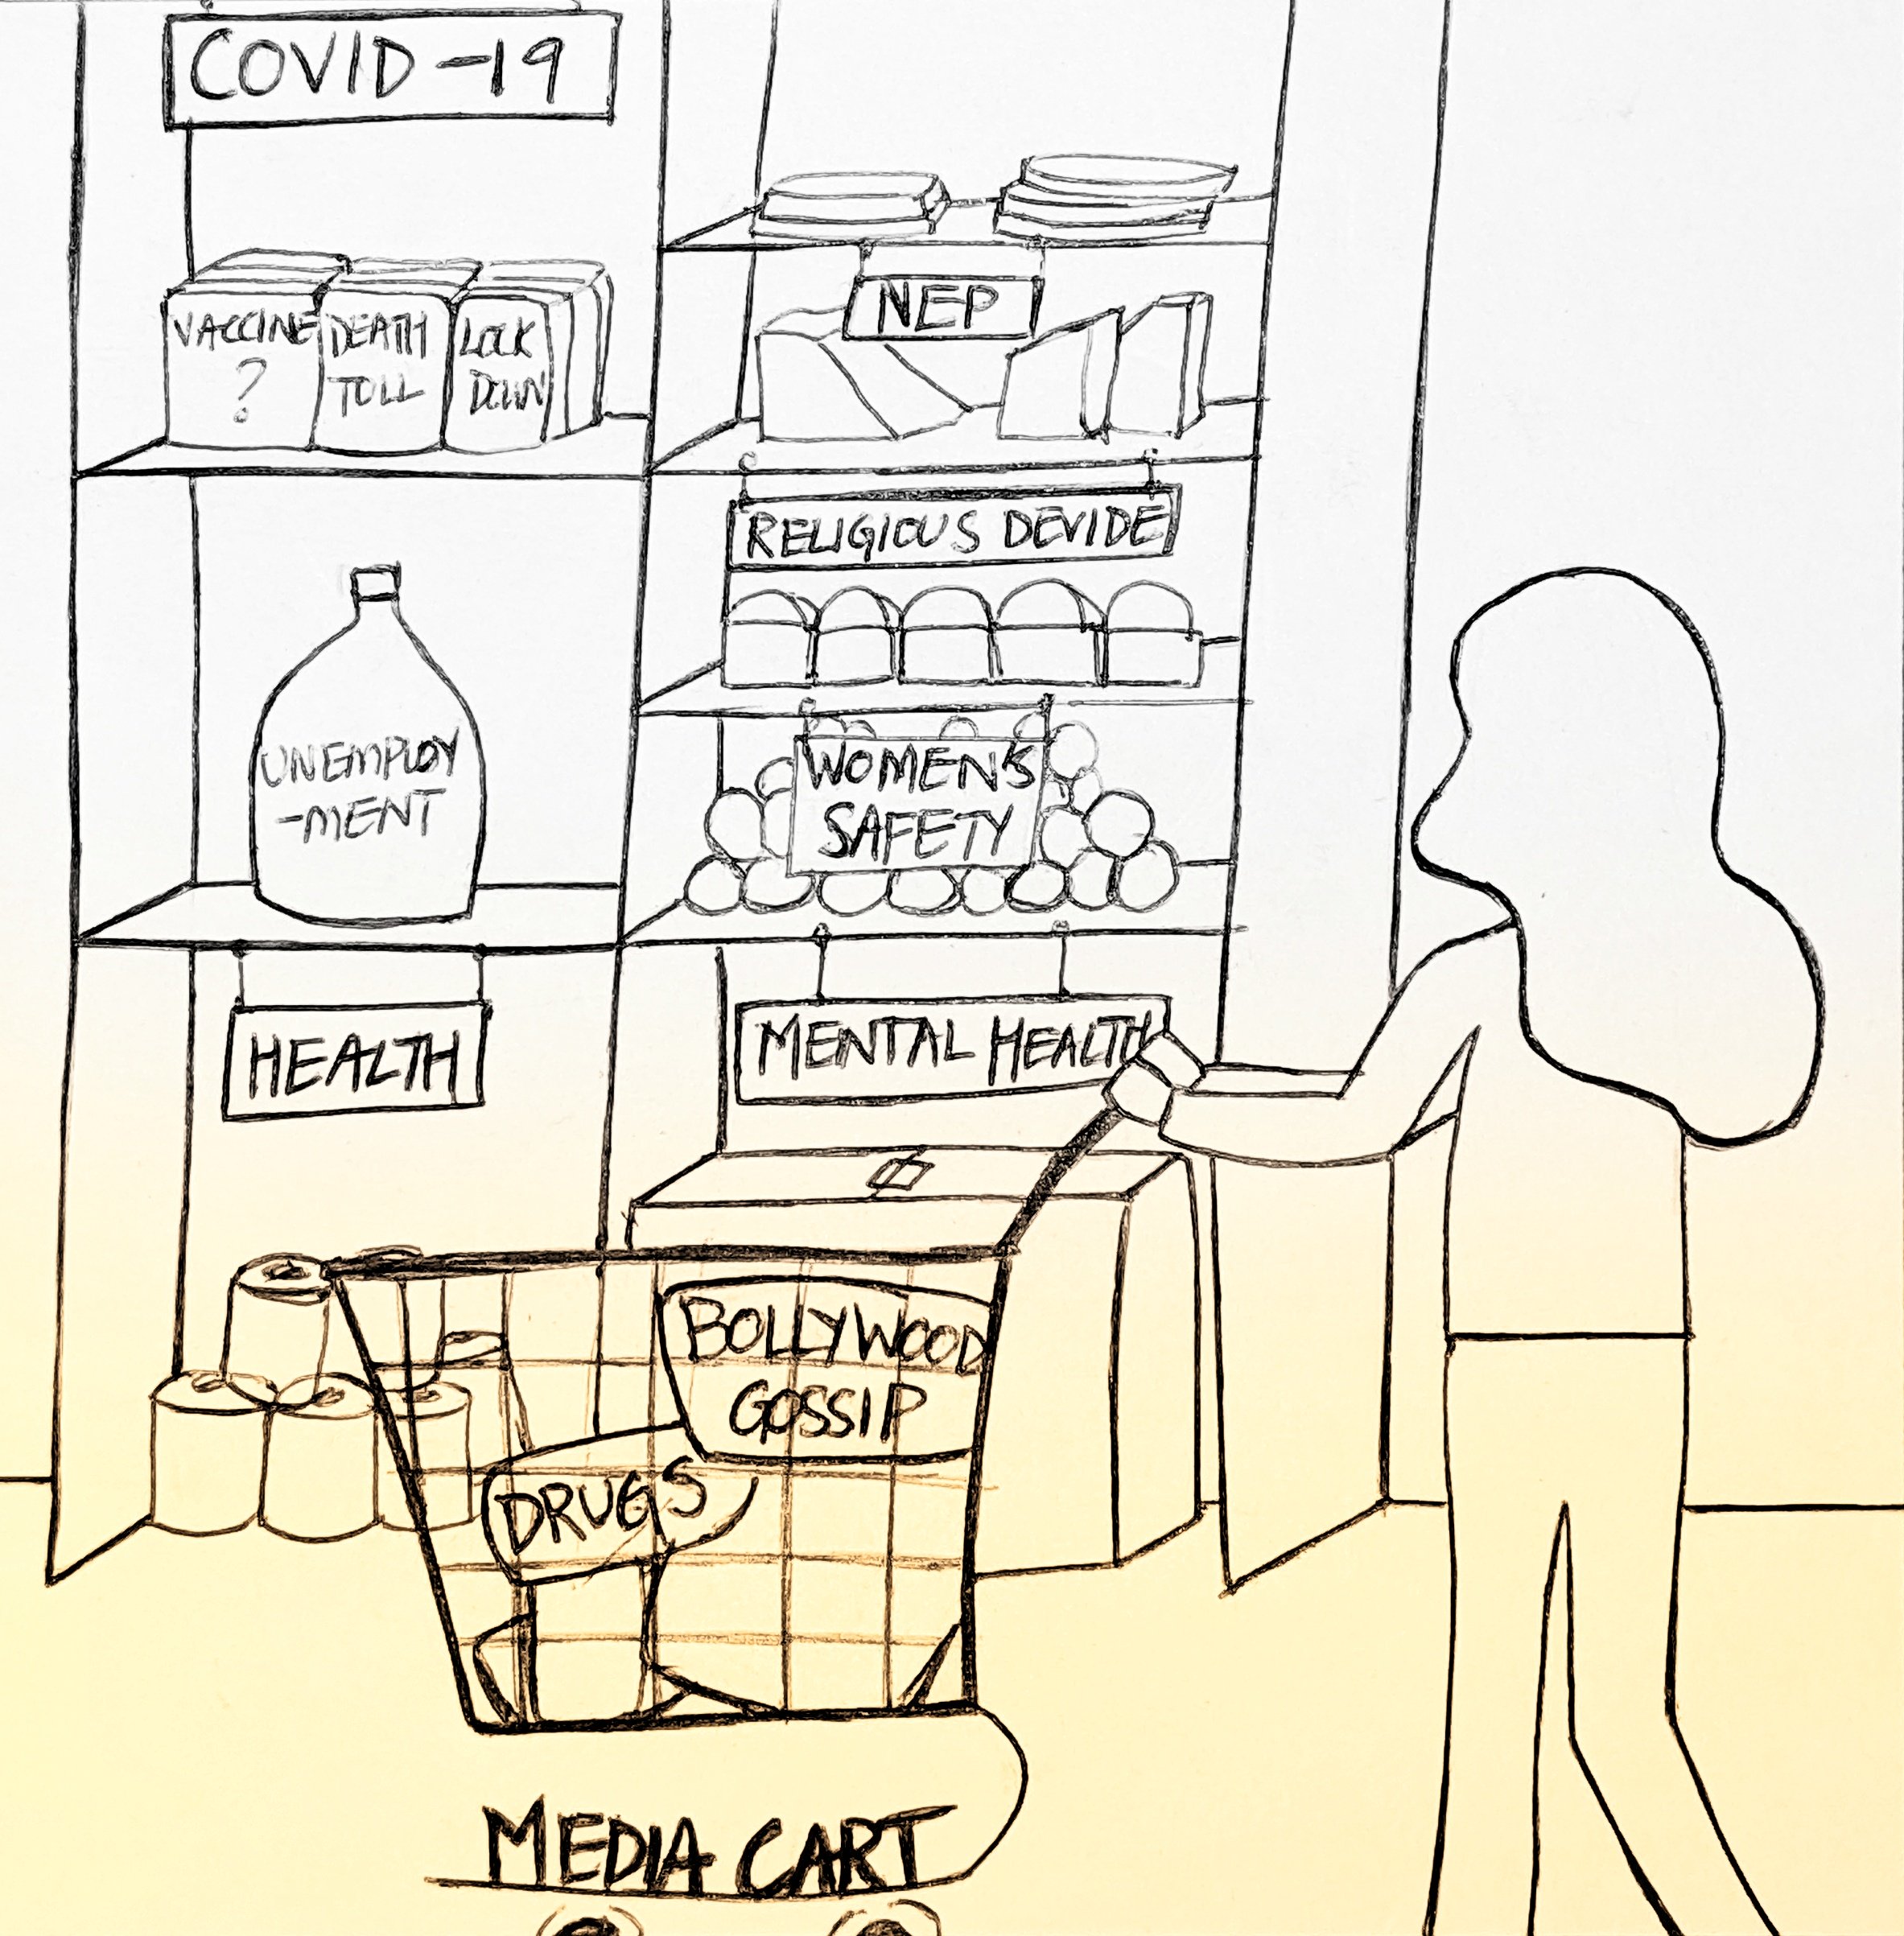 COVID-19
VACCINE
?
DEATH
TOLL
LOCK
DOWN
NEP
RELIGIOUS DEVIDE
UNEMPLOY
-MENT
WOMEN'S
SAFETY
HEALTH
MENTAL HEALTH
BOLLYWOOD
GOSSIP
DRUGS
MEDIA CART